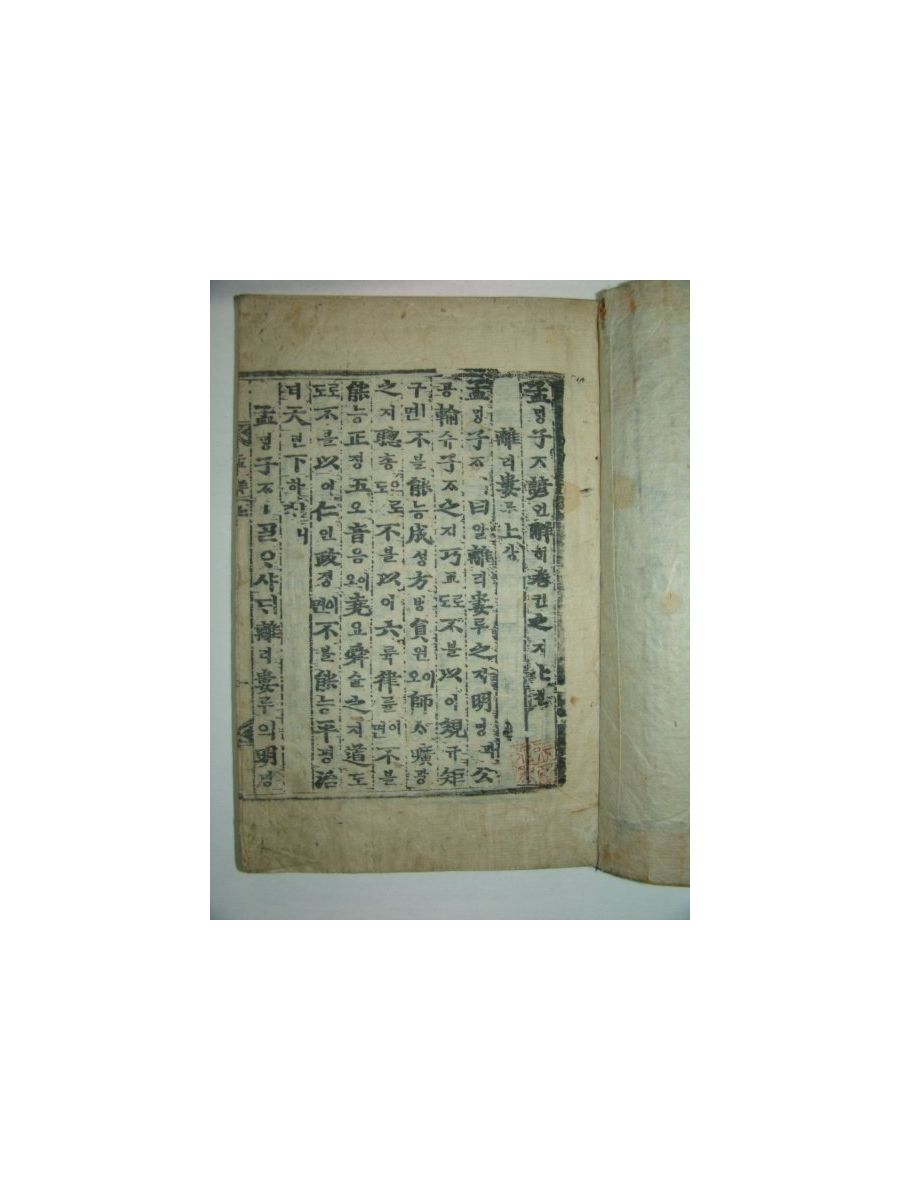 孟밍子ᄌᆞ諺언解ᄒᆡ卷권之지七칠
離리婁루上샹
孟밍子ᄌᆞㅣ曰왈離리婁루之지明명과公
공輸슈子ᄌᆞ之지巧교로도不블以이規규矩
구ㅣ면不블能능成셩方방員원이오師ᄉᆞ曠광
之지聰총으로도不블以이六륙律률이면不블
能능正졍五오音음이오堯요舜슌之지道도
로도不블以이仁인政졍이면不블能능平평治
티天텬下하ㅣ니
孟밍子ᄌᆞㅣᄀᆞᆯᄋᆞ샤ᄃᆡ離리婁루의明명